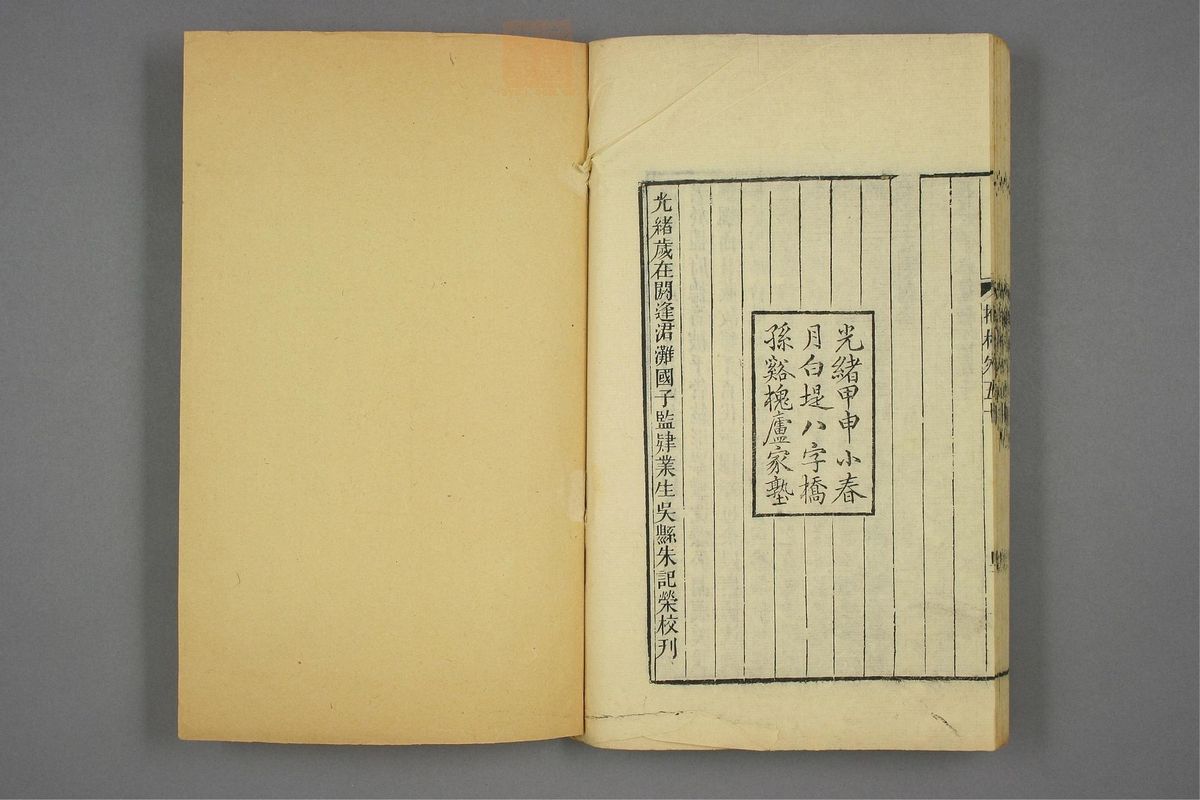 抱朴外五十
光緒甲申小春
月白堤八字橋
孫谿槐廬家塾
光緒歲在閼逢涒灘國子監肄業生吳縣朱記榮校刊